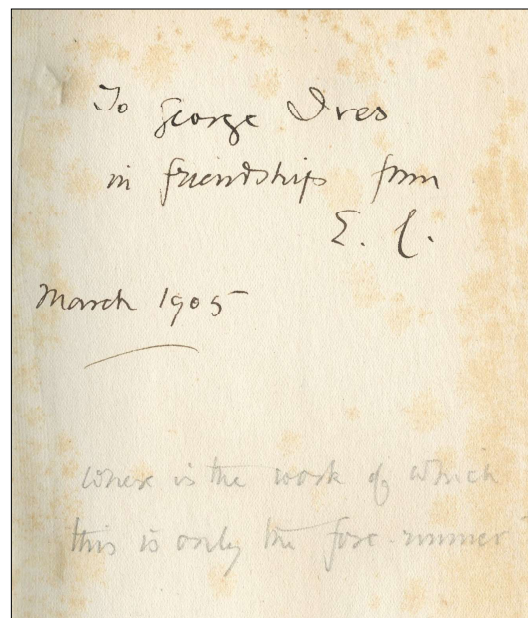 To George Ives
in friendship from
E. C.
March 1905
Where is the work of which
this is only the fore-runner